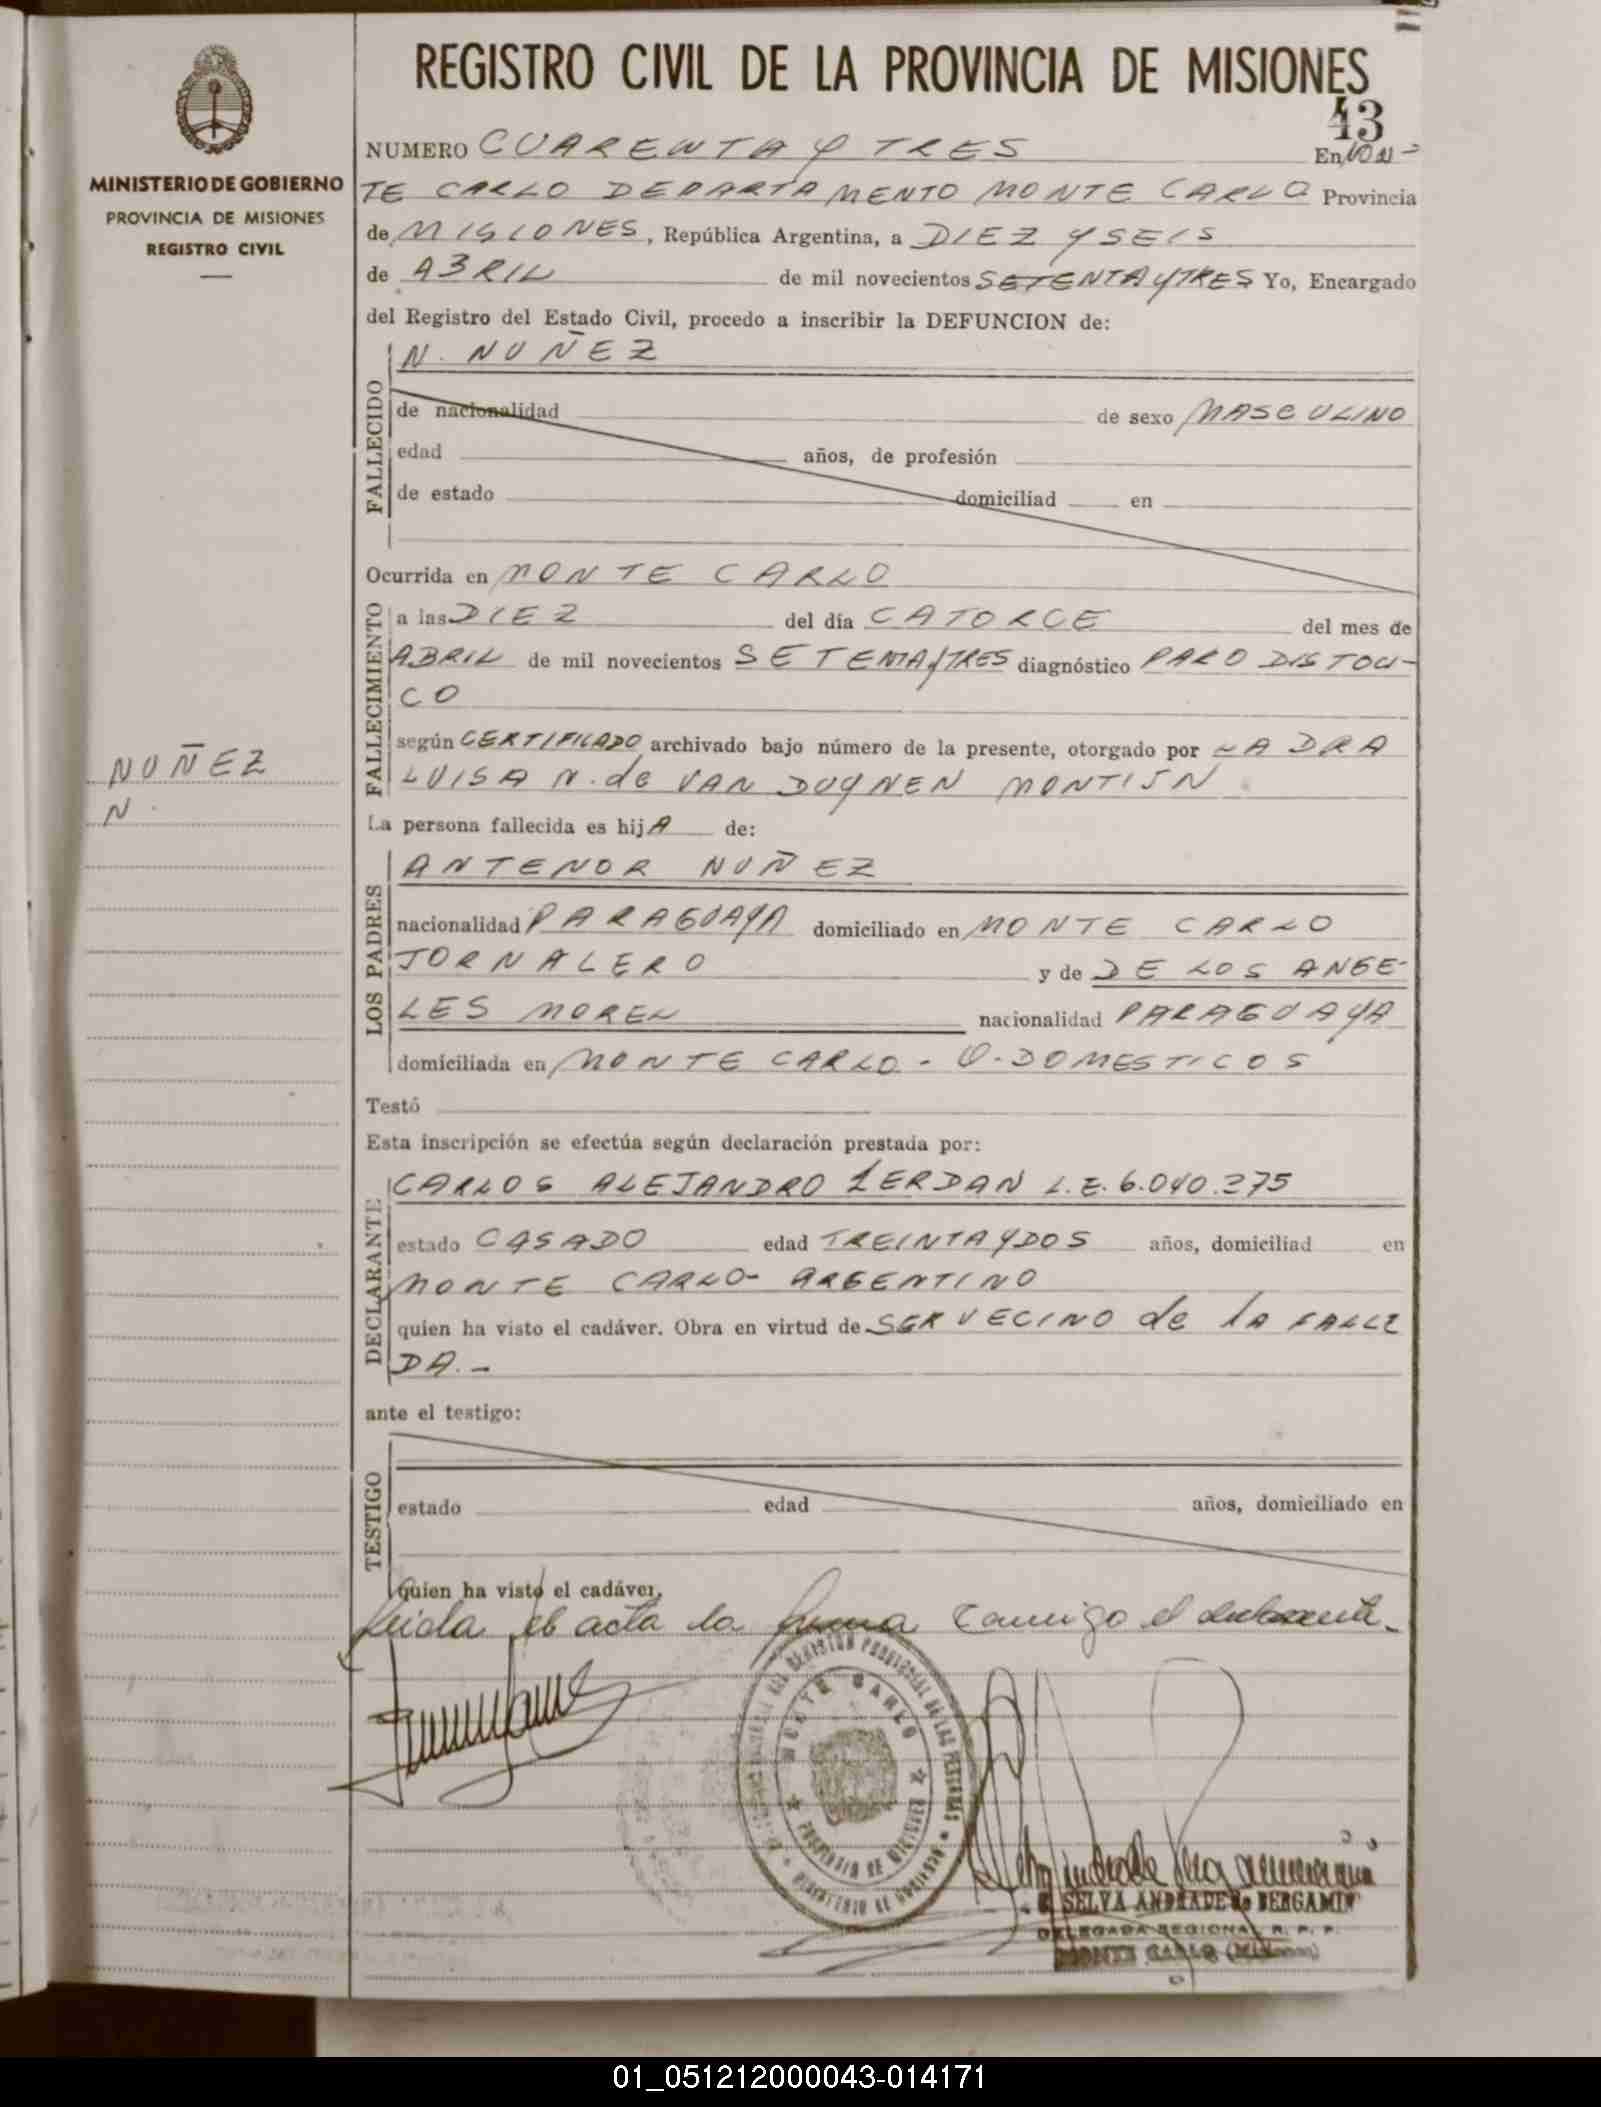 REGISTRO CIVIL DE LA PROVINCIA DE MISIONES
43
MINISTERIO DE GOBIERNO
PROVINCIA DE MISIONES
REGISTRO CIVIL
NUMERO CUARENTA Y TRES En MON-
TE CARLO DEPARTAMENTO MONTE CARLO Provincia
de MISIONES, República Argentina, a DIEZ Y SEIS
de ABRIL de mil novecientos SETENTA Y TRES Yo, Encargado
del Registro del Estado Civil, procedo a inscribir la DEFUNCION de:
N. NUÑEZ
FALLECIDO
de nacionalidad de sexo MASCULINO
edad años, de profesión
de estado domiciliad en
Ocurrida en MONTE CARLO
FALLECIMIENTO
a las DIEZ del día CATORCE del mes de
ABRIL de mil novecientos SETENTA Y TRES diagnóstico PARO DISTOCI-
CO
según CERTIFICADO archivado bajo número de la presente, otorgado por LA DRA
LUISA N. de VAN DUYNEN MONTIJN
NUÑEZ
N.
La persona fallecida es hijA de:
LOS PADRES
ANTENOR NUÑEZ
nacionalidad PARAGUAYA domiciliado en MONTE CARLO
JORNALERO y de DE LOS ANGE-
LES MOREL nacionalidad PARAGUAYA
domiciliada en MONTE CARLO - Q. DOMESTICOS
Testó
Esta inscripción se efectúa según declaración prestada por:
DECLARANTE
CARLOS ALEJANDRO ZERDAN L.E. 6.040.275
estado CASADO edad TREINTA Y DOS años, domiciliad en
MONTE CARLO- ARGENTINO
quien ha visto el cadáver. Obra en virtud de SER VECINO de la FALLE
DA.-
ante el testigo:
TESTIGO
estado edad años, domiciliado en
quien ha visto el cadáver,
Leida el acta la firma conmigo el declarante.
MONTE CARLO
PROVINCIA DE MISIONES
MINISTERIO DE GOBIERNO
SELVA ANDRADE de BERGAMIN
DELEGADA REGIONAL R. P. P.
MONTE CARLO (Misiones)
01_051212000043-014171